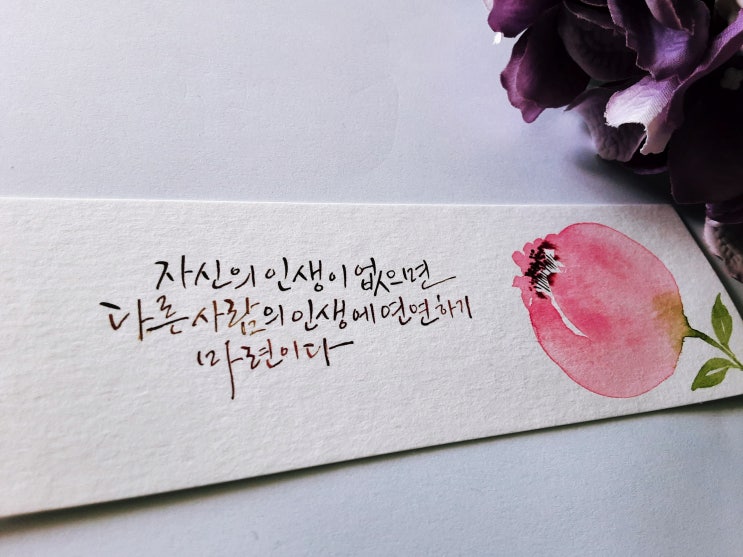 자신의 인생이 없으면
다른 사람의 인생에 연연하기
마련이다